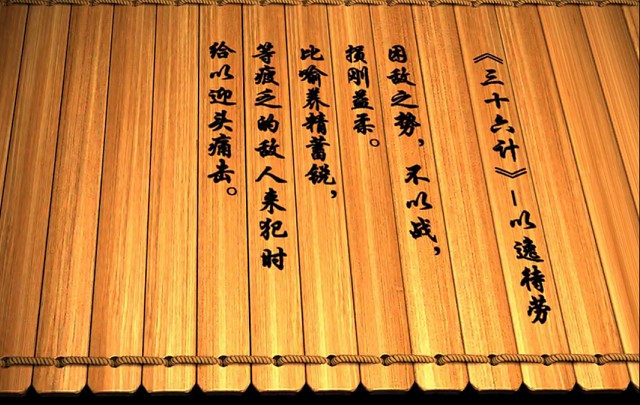 《三十六计》-以逸待劳
困敌之势，不以战，
损刚益柔。
比喻养精蓄锐，
等疲乏的敌人来犯时
给以迎头痛击。